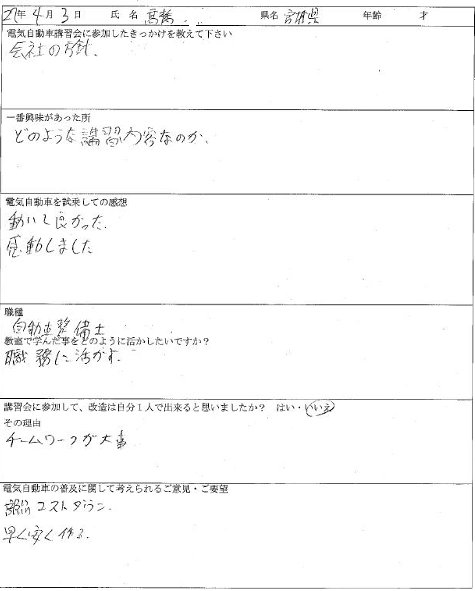 21年 4月 3日 氏 名 高橋 県名 宮城県 年齢 才
電気自動車講習会に参加したきっかけを教えて下さい
会社の方針.
一番興味があった所
どのような講習内容なのか.
電気自動車を試乗しての感想
動いて良かった.
感動しました
職種
自動車整備士
教室で学んだ事をどのように活かしたいですか?
職務に活かす.
講習会に参加して、改造は自分1人で出来ると思いましたか? はい・いいえ
その理由
チームワークが大事
電気自動車の普及に関して考えられるご意見・ご要望
コストダウン.
早く安く作る.